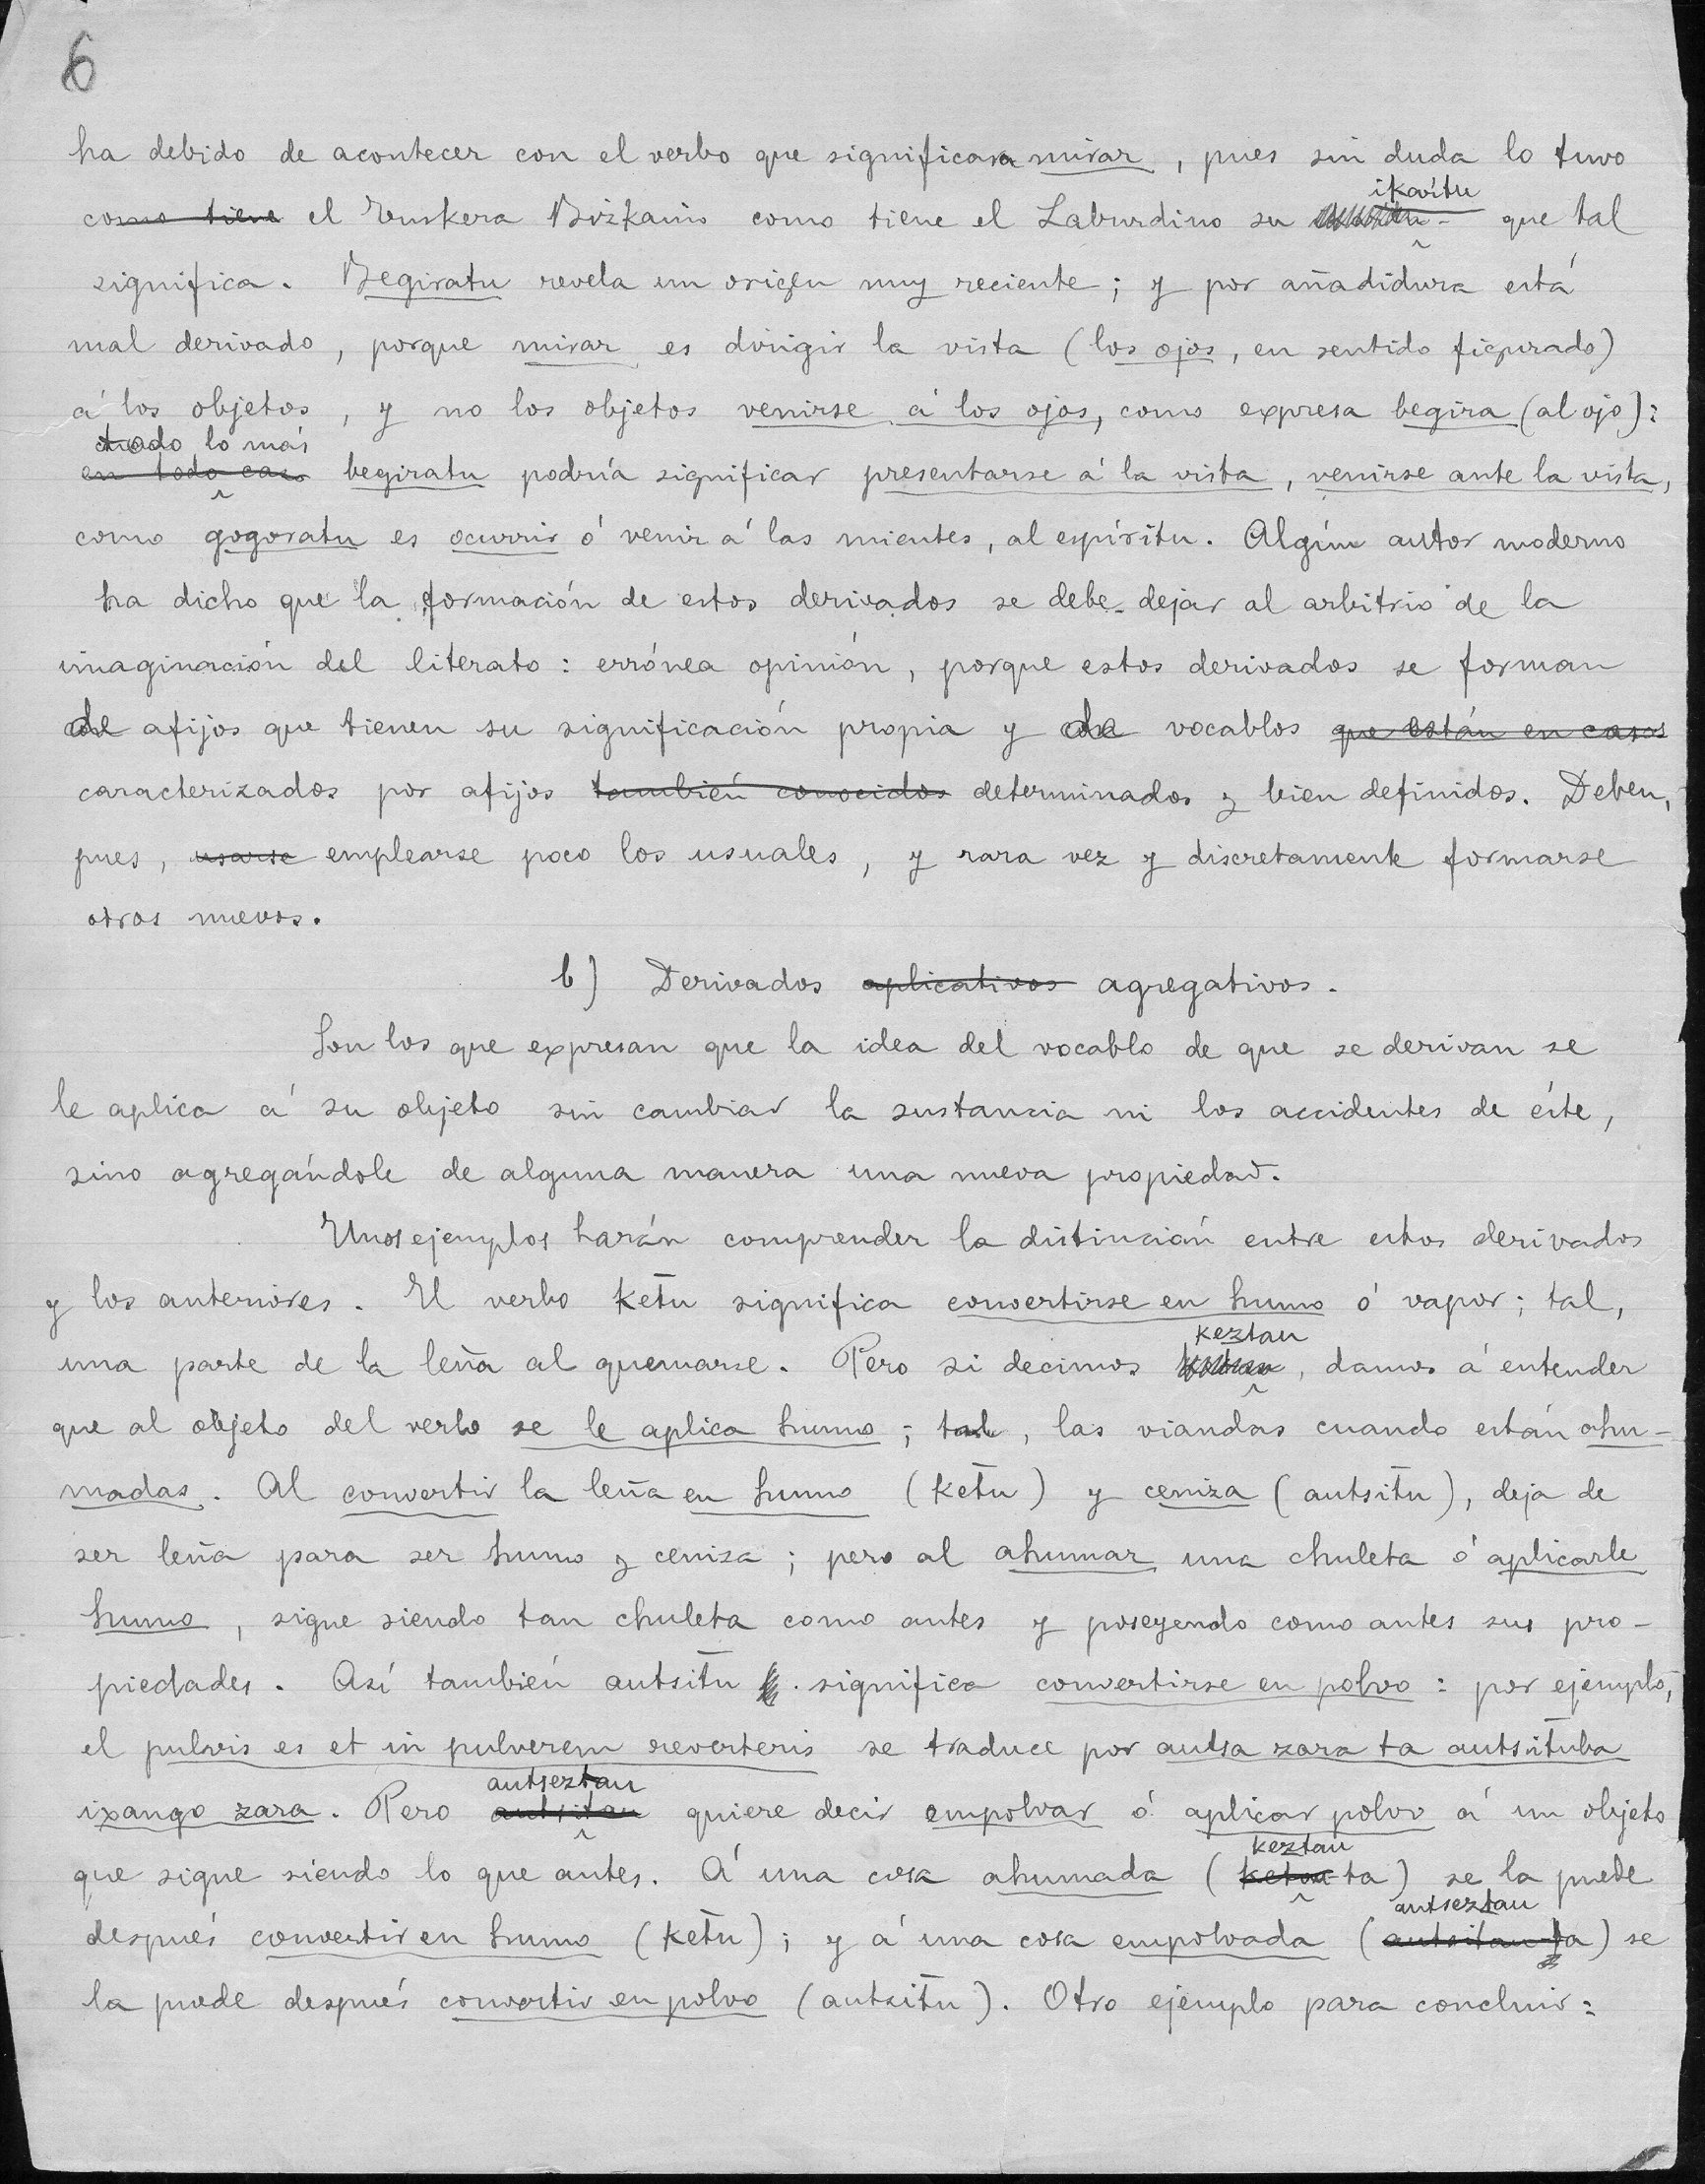 6
ha debido de acontecer con el verbo que significara mirar, pues sin duda lo tuvo
ikaŕtu
como tiene el Euskera Bizkaino como tiene el Laburdino su que tal
significa. Begiratu revela un origen muy reciente; y por añadidura está
mal derivado, porque mirar es dirigir la vista (los ojos, en sentido figurado)
á los objetos, y no los objetos venirse á los ojos, como expresa begira (al ojo):
todo lo más
en todo caso begiratu podría significar presentarse á la vista, venirse ante la vista,
como gogoratu es ocurrir ó venir á las mientes, al espíritu. Algún autor moderno
ha dicho que la formación de estos derivados se debe dejar al arbitrio de la
imaginación del literato: errónea opinión, porque estos derivados se forman
de afijos que tienen su significación propia y de vocablos que están en casos
caracterizados por afijos también conocidos determinados y bien definidos. Deben,
pues, usarse emplearse poco los usuales, y rara vez y discretamente formarse
otros nuevos.
b) Derivados aplicativos agregativos.
Son los que expresan que la idea del vocablo de que se derivan se
le aplica á su objeto sin cambiar la sustancia ni los accidentes de éste,
sino agregándole de alguna manera una nueva propiedad.
Unos ejemplos harán comprender la distinción entre estos derivados
y los anteriores. El verbo ket̄u significa convertirse en humo ó vapor; tal,
keztau
una parte de la leña al quemarse. Pero si decimos , damos á entender
que al objeto del verbo se le aplica humo; tal, las viandas cuando están ahu-
madas. Al convertir la leña en humo (ket̄u) y ceniza (autsit̄u), deja de
ser leña para ser humo y ceniza; pero al ahumar una chuleta ó aplicarle
humo, sigue siendo tan chuleta como antes y poseyendo como antes sus pro-
piedades. Así también autsit̄u significa convertirse en polvo: por ejemplo,
el pulvis es et in pulverem reverteris se traduce por autsa zara ta autsit̄uba
autseztau
ixango zara. Pero autsitau quiere decir empolvar ó aplicar polvo á un objeto
keztau
que sigue siendo lo que antes. Á una cosa ahumada (ketau-ta) se la puede
autseztau
después convertir en humo (ket̄u); y á una cosa empolvada (autsitau-ta) se
la puede después convertir en polvo (autsit̄u). Otro ejemplo para concluir: